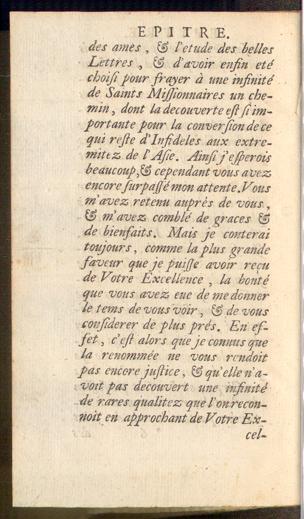 EPITRE.
des ames, & l'etude des belles
Lettres, & d'avoir enfin eté
choisi pour frayer à une infinité
de Saints Missionnaires un che-
min, dont la decouverte est si im-
portante pour la conversion de ce
qui reste d'Infideles aux extre-
mitez de l'Asie. Ainsi j'esperois
beaucoup, & cependant vous avez
encore surpassé mon attente. Vous
m'avez retenu auprés de vous,
& m'avez comblé de graces &
de bienfaits. Mais je conterai
toujours, comme la plus grande
faveur que je puisse avoir reçu
de Votre Excellence, la bonté
que vous avez eue de me donner
le tems de vous voir, & de vous
considerer de plus prés. En ef-
fet, c'est alors que je connus que
la renommée ne vous rendoit
pas encore justice, & qu'elle n'a-
voit pas decouvert une infinité
de rares qualitez que l'on recon-
noit en approchant de Votre Ex-
cel-